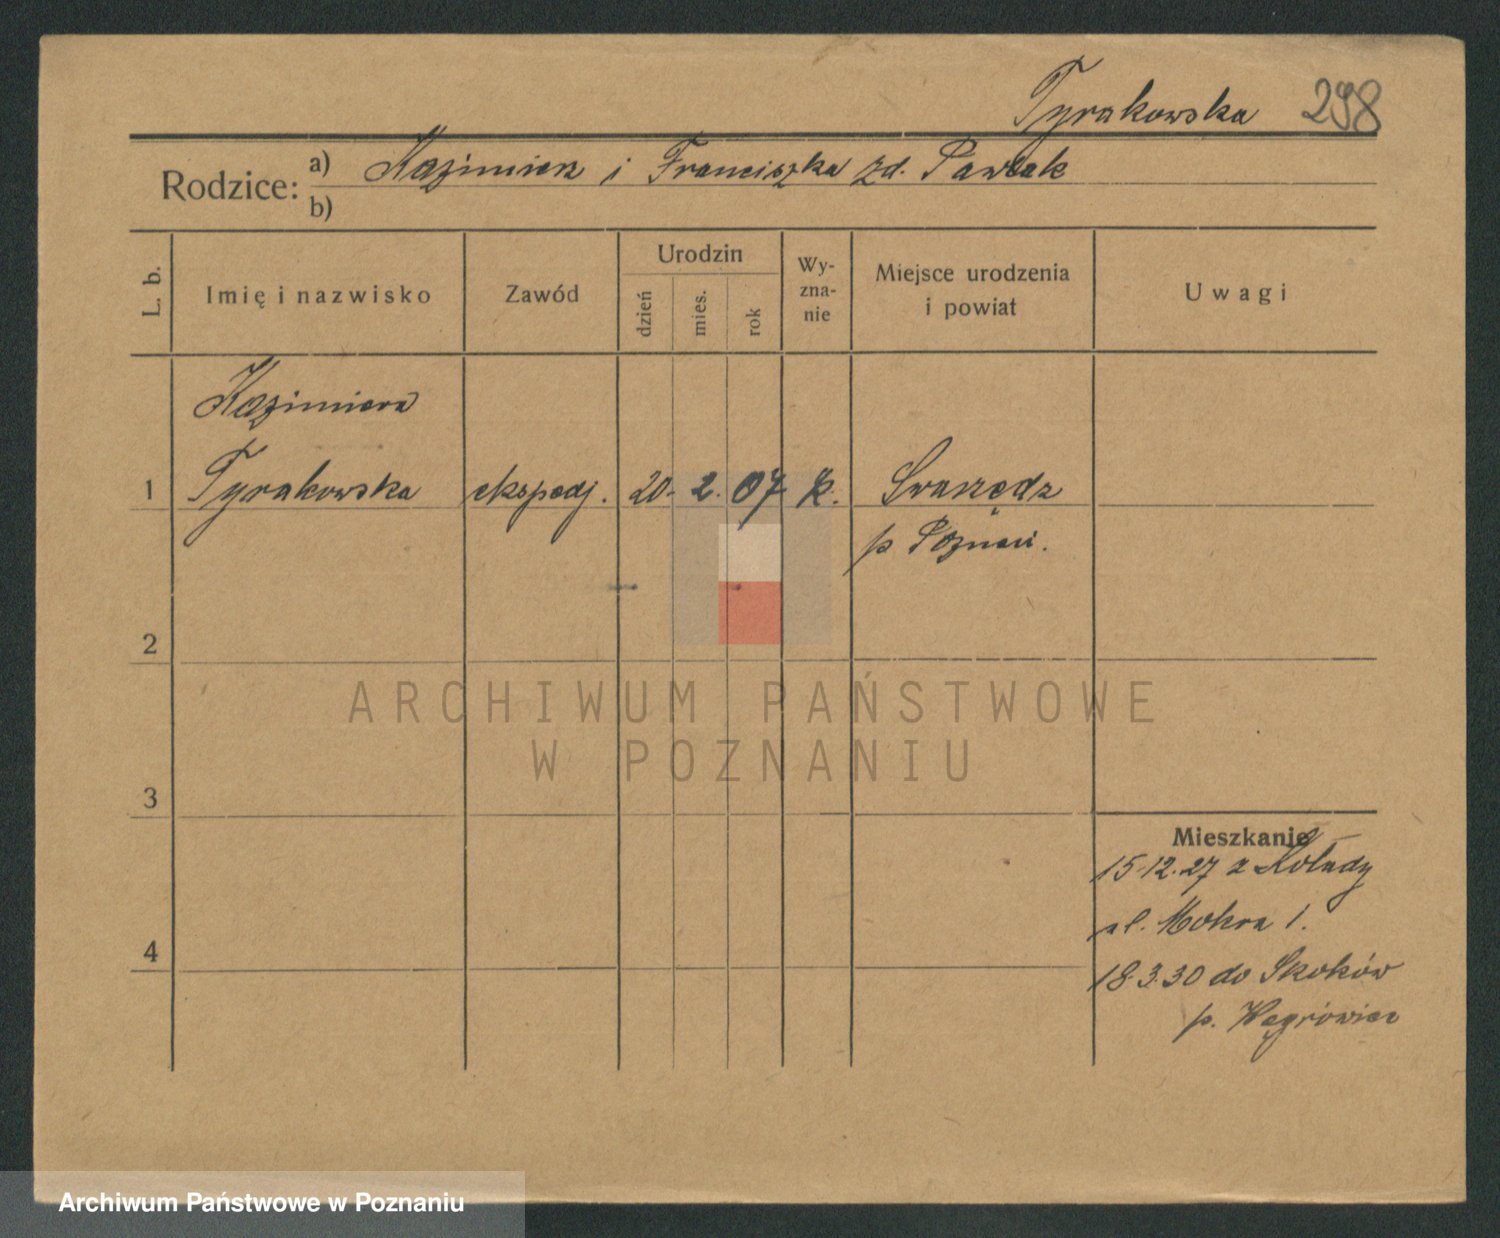 Tyrakowska 298
Rodzice: a) Kazimierz i Franciszka zd. Pawlak
b)
L. b.
Imię i nazwisko
Zawód
Urodzin
dzień
mies.
rok
Wy-
zna-
nie
Miejsce urodzenia
i powiat
Uwagi
Kazimiera
1 Tyrakowska ekspedj. 20. 2. 07 k. Swarzędz
p Poznań.
2
3
4
Mieszkanie
15.12.27 z Kołudy
ul. Mokra 1.
18.3.30 do Skoków
p. Wągrówiec
ARCHIWUM PAŃSTWOWE
W POZNANIU
Archiwum Państwowe w Poznaniu